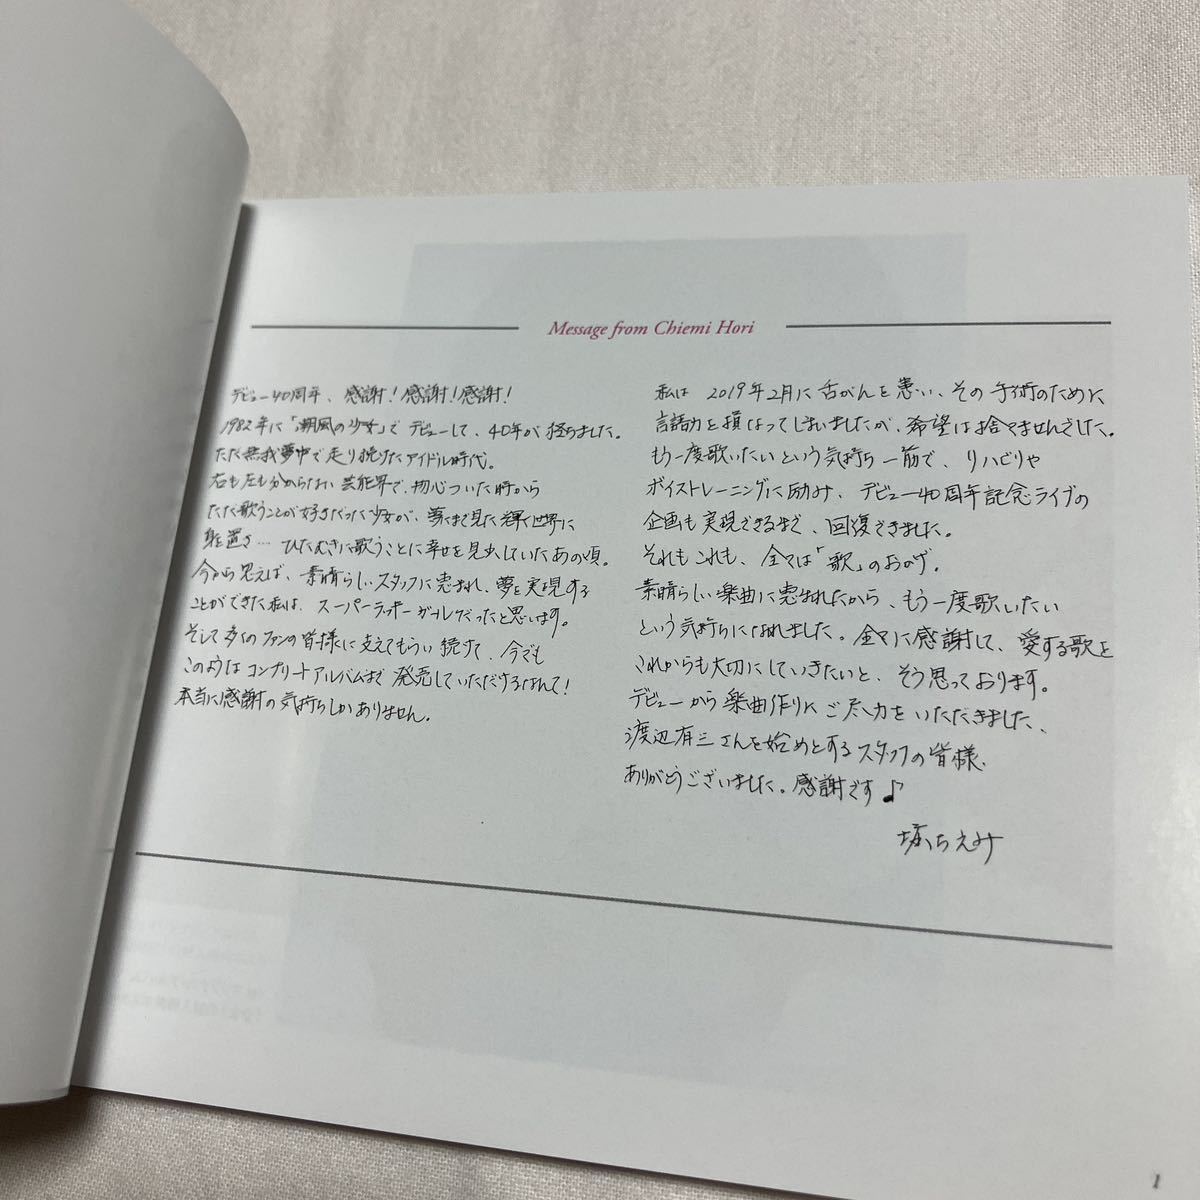 Message from Chiemi Hori
デビュー40周年、感謝!感謝!感謝!
1982年に「潮風の少女」でデビューして、40年が経ちました。
ただ無我夢中で走り続けたアイドル時代。
右も左も分からない芸能界で、物心ついた時から
ただ歌うことが好きだった少女が、夢にまで見た輝く世界に
身を置き… ひたむきに歌うことに幸せを見出していたあの頃。
今から思えば、素晴らしいスタッフに恵まれ、夢を実現する
ことができた私は、スーパーラッキーガールだったと思います。
そして多くのファンの皆様に支えてもらい続けて、今でも
このようなコンプリートアルバムまで発売していただけるなんて!
本当に感謝の気持ちしかありません。
私は2019年2月に舌がんを患い、その手術のために
言語力を損なってしまいましたが、希望は捨てませんでした。
もう一度歌いたいという気持ち一筋で、リハビリや
ボイストレーニングに励み、デビュー40周年記念ライブの
企画も実現できるまで、回復できました。
それもこれも、全ては「歌」のおかげ。
素晴らしい楽曲に恵まれたから、もう一度歌いたい
という気持ちになれました。全てに感謝して、愛する歌を
これからも大切にしていきたいと、そう思っております。
デビューから楽曲作りにご尽力をいただきました、
渡辺有三さんを始めとするスタッフの皆様、
ありがとうございました。感謝です♪
堀ちえみ
1